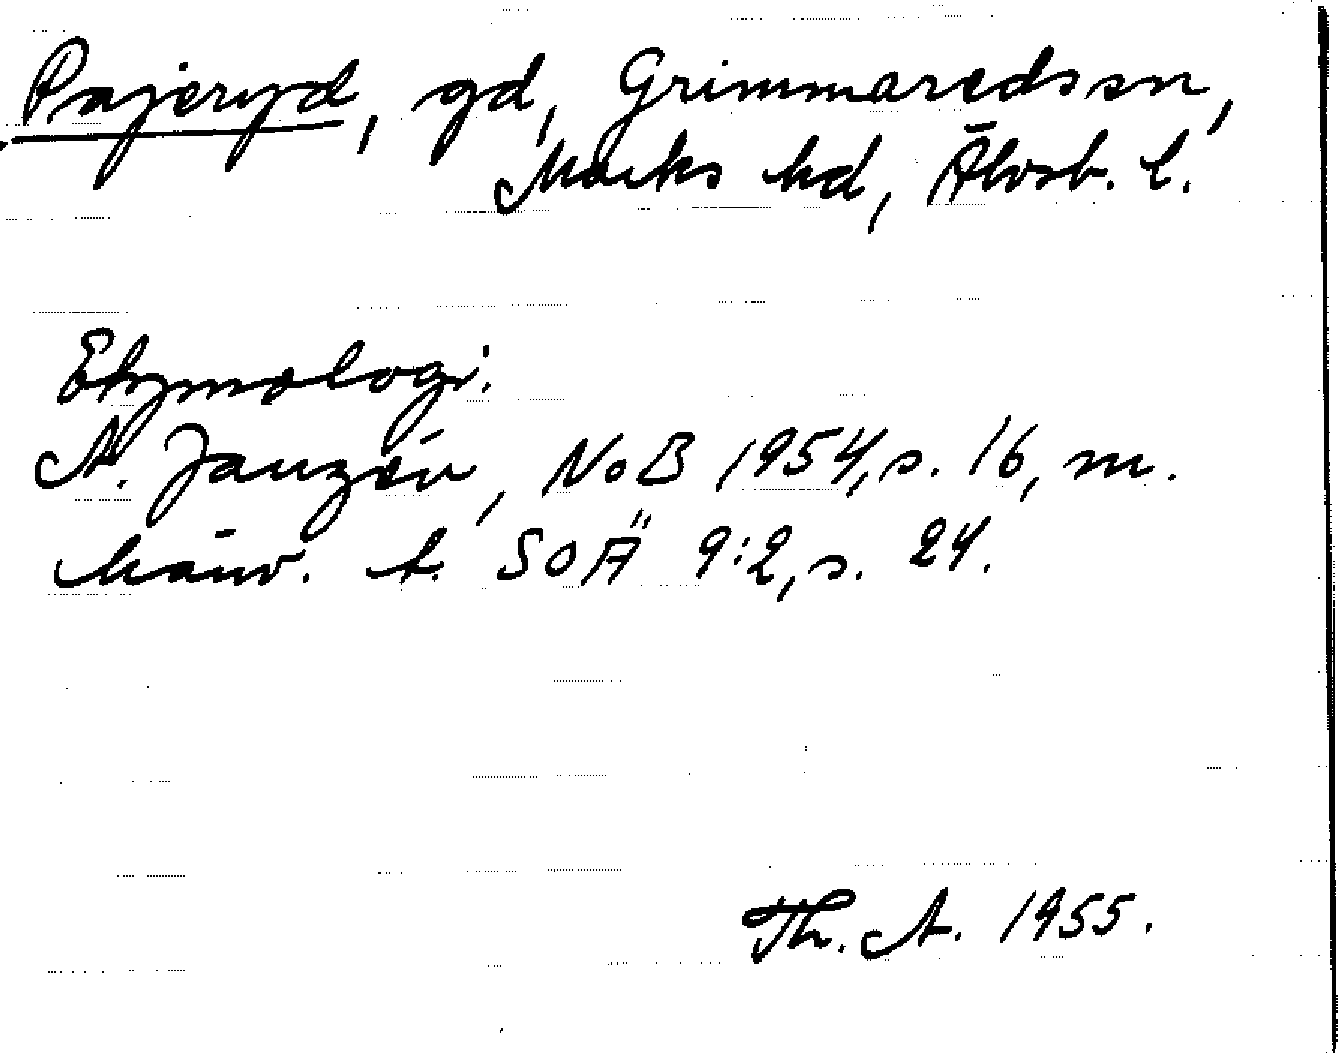 Pajeryd, gd, Grimmaredssn,
Marks hd, Älvsb. l.
Etymologi:
A. Janzén, NoB 1954, s. 16, m.
hänv. t. SOÄ 9:2, s. 24.
Th. A. 1955.